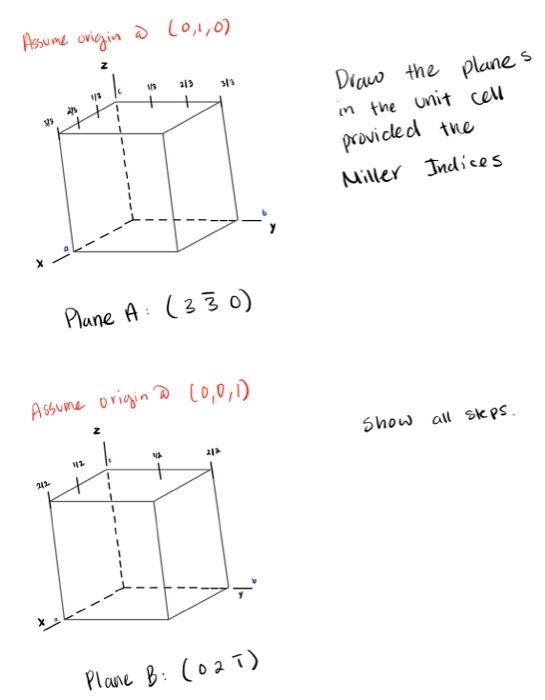 Assume origin @ (0,1,0)
z
c
3/3 2/3 1/3 1/3 2/3 3/3
a
x
b
y
Plane A: (3 3̅ 0)
Draw the planes
in the unit cell
provided the
Miller Indices
Assume origin @ (0,0,1)
z
c
2/2 1/2 1/2 2/2
x
a
b
y
Plane B: (0 2 1̅)
Show all steps.